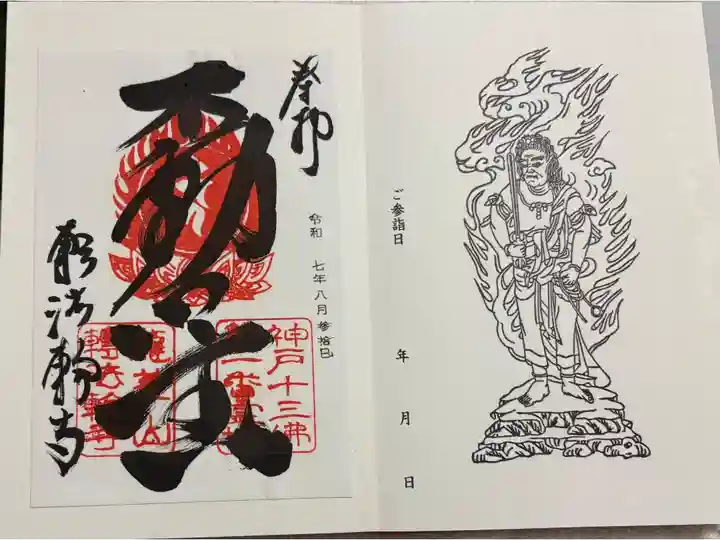 ご参詣日
年 月 日
奉拝
令和 七年八月参拾日
不動明王
神戸十三佛
第一番霊場
龍華山
轉法輪寺
転法輪寺